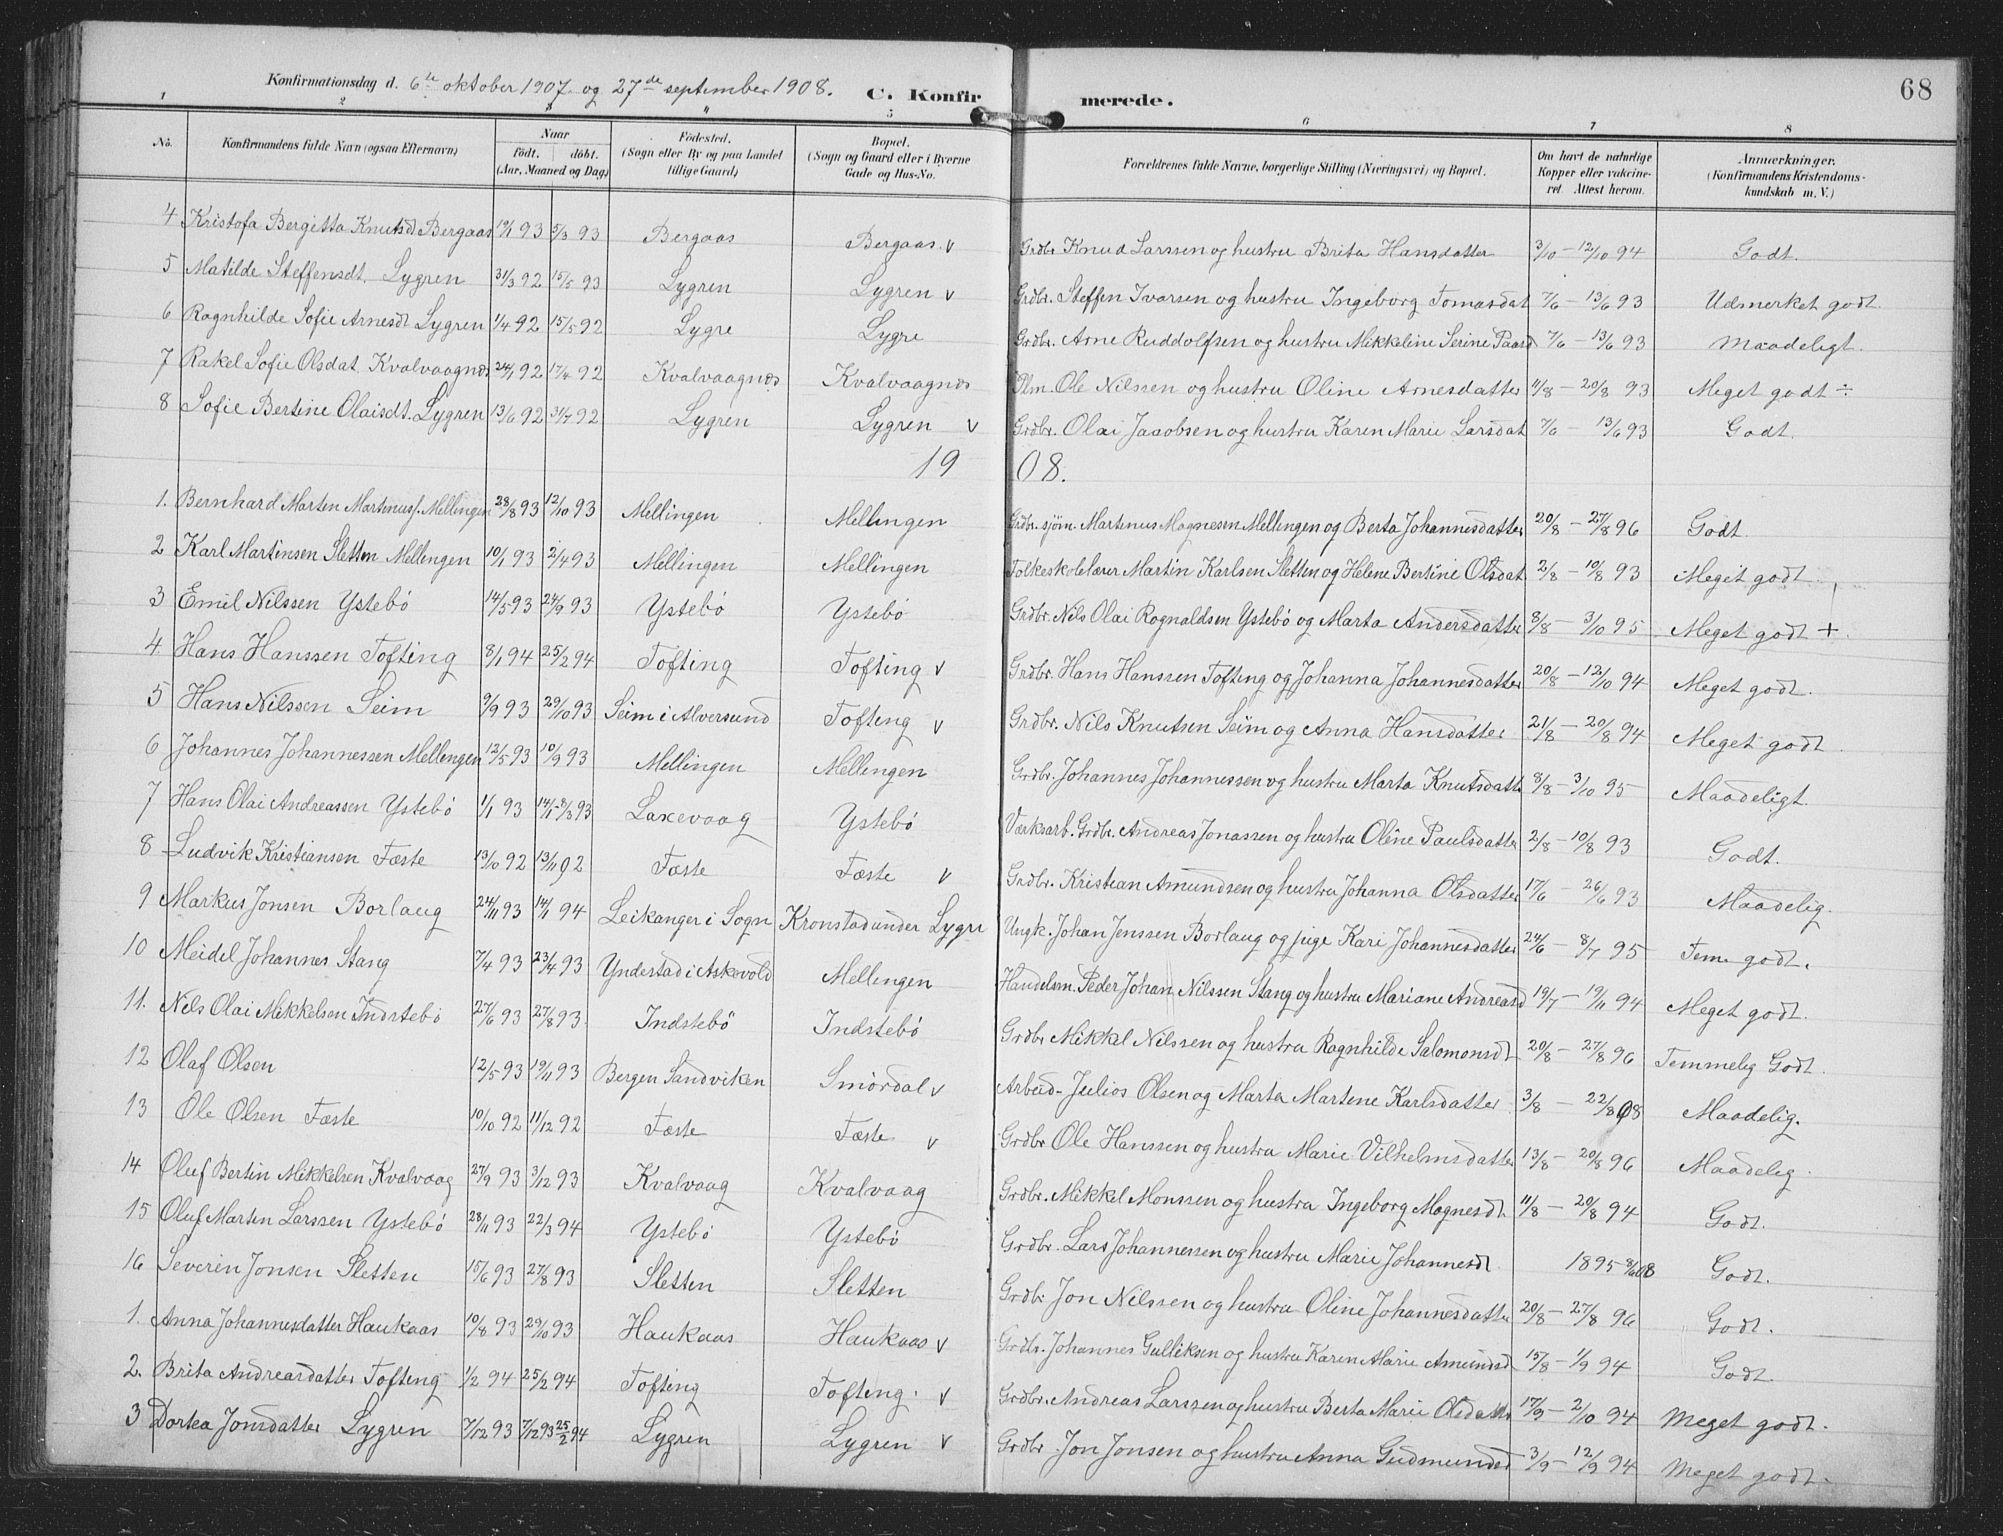 68
Konfirmationsdag d. 6te oktober 1907 og 27de september 1908. C. Konfir merede.
1 2 3 4 5 6 7 8
No. Konfirmandens fulde Navn (ogsaa Efternavn) Naar født. døbt. (Aar, Maaned og Dag) Födested. (Sogn eller By og paa Landet tillige Gaard) Bopæl. (Sogn og Gaard eller i Byerne Gade og Hus-No. Forældrenes fulde Navne, borgerlige Stilling (Næringsvei) og Bopæl. Om havt de naturlige Kopper eller vakcineret. Attest herom. Anmærkninger. (Konfirmandens Kristendomskundskab m. V.)
4 Kristofa Bergitta Knutsdt Bergaas 19/1 93 5/3 93 Bergaas Bergaas. v Grdbr. Knud Larssen og hustru Brita Hansdatter 3/10 – 12/10 94 Godt.
5 Matilde Steffensdt. Lygren 31/3 92 15/5 93 Lygren Lygren v Grdbr. Steffen Ivarsen og hustru Ingeborg Tomasdat 7/6 – 13/6 93 Udmerket godt.
6 Ragnhilde Sofie Arnesdt Lygren 1/4 92 15/5 92 Lygre Lygre Grdbr. Arne Ruddolfsen og hustru Mikkeline Serine Paarsd 7/6 – 13/6 93 Maadeligt.
7 Rakel Sofie Olsdat. Kvalvaagnæs 24/1 92 17/4 92 Kvalvaagnæs Kvalvaagnæs Plm. Ole Nilssen og hustru Oline Arnesdatter 11/8 – 20/8 93 Meget godt ÷
8 Sofie Bertine Olaisdt. Lygren 13/6 92 31/7 92 Lygren Lygren v Grdbr. Olai Jacobsen og hustru Karen Marie Larsdat 7/6 – 13/6 93 Godt.
1908.
1. Bernhard Marten Martinuss. Mellingen 28/8 93 12/10 93 Mellingen Mellingen Grdbr. sjöm. Martinus Magnesen Mellingen og Berta Johannesdatter 20/8 – 27/8 96 Godt.
2 Karl Martinsen Sletten Mellingen 10/1 93 2/4 93 Mellingen Mellingen Folkeskolelærer Martin Karlsen Sletten og Helene Bertine Olsdat 2/8 – 10/8 93 Meget godt.
3 Emil Nilssen Ystebö 14/5 93 24/9 93 Ystebö Ystebö Grdbr. Nils Olai Ragnaldsen Ystebö og Marta Andersdatter 8/8 – 3/10 95 Meget godt +.
4. Hans Hanssen Tofting 8/1 94 25/2 94 Tofting Tofting v Grdbr. Hans Hanssen Tofting og Johanna Johannesdatter 20/8 – 12/10 94 Meget godt.
5 Hans Nilssen Seim 9/9 93 29/10 93 Seim i Alversund Tofting v Grdbr. Nils Knutsen Seim og Anna Hansdatter 21/8 – 20/8 94 Meget godt.
6 Johannes Johannessen Mellengen 12/5 93 10/9 93 Mellingen Mellingen Grdbr. Johannes Johannessen og hustru Marta Knutsdatte 8/8 – 3/10 95 Maadeligt.
7 Hans Olai Andreassen Ystebö 1/1 93 14/1 - 8/3 93 Laxevaag Ystebö Værksarb. Grdbr. Andreas Jonassen og hustru Oline Paulsdatter 2/8 – 10/8 93 Godt.
8 Ludvik Kristiansen Fæste 13/10 92 13/11 92 Fæste Fæste v Grdbr. Kristian Amundsen og hustru Johanna Olsdatter 17/6 – 26/6 93 Maadelig.
9 Markus Jonsen Borlaug 24/11 93 14/1 94 Leikanger i Sogn Kronstad under Lygre Ungk. Johan Jenssen Borlaug og pige Kari Johannesdatter 24/6 – 8/7 95 Tem. godt.
10 Meidel Johannes Stang 7/4 93 23/4 93 Yndestad i Askevold Mellingen Handelsm. Peder Johan Nilssen Stang og hustru Mariane Andreasd 19/7 – 19/11 94 Meget godt.
11. Nils Olai Mikkelsen Indstebö 27/6 93 27/8 93 Indstebö Indstebö Grdbr Mikkel Nilssen og hustru Ragnhilde Salomonsdt 20/8 – 27/8 96 Temmelig Godt.
12 Olaf Olsen 12/5 93 19/11 93 Bergen Sandviken Smördal v Arbeid. Julios Olsen og Marta Martene Karlsdatter 3/8 – 22/8 08 Maadelig.
13 Ole Olsen Fæste 10/10 92 11/12 92 Fæste Fæste v Grdbr Ole Hanssen og hustru Marie Vilhelmsdatter 13/8 – 20/8 96 Maadelig.
14 Oluf Bertin Mikkelsen Kvalvaag 27/9 93 3/12 93 Kvalvaag Kvalvaag Grdbr. Mikkel Monssen og hustru Ingeborg Magnesdt. 11/8 – 20/8 94 Godt.
15 Oluf Marten Larssen Ystebö 28/11 93 22/3 94 Ystebö Ystebö Grdbr. Lars Johannessen og hustru Marie Johannesdt 1895 08 Godt.
16 Severin Jonsen Sletten 15/6 93 27/8 93 Sletten Sletten Grdbr Jon Nilssen og hustru Oline Johannesdatter 20/8 – 27/8 96 Godt.
1. Anna Johannesdatter Haukaas 10/8 93 29/10 93 Haukaas Haukaas v Grdbr. Johannes Gulliksen og hustru Karen Marie Amundsd 15/8 – 1/9 94 Godt.
2. Brita Andreasdatter Tofting 1/2 94 25/2 94 Tofting Tofting. v Grdbr. Andreas Larssen og hustru Berta Marie Olsdatter 17/9 – 2/10 94 Meget godt.
3 Dortea Jonsdatter Lygren 7/12 93 7/12 93 25/2 94 Lygren Lygren v Grdbr Jon Jonsen og hustru Anna Gudmundsd 3/9 – 12/9 94 Meget godt.